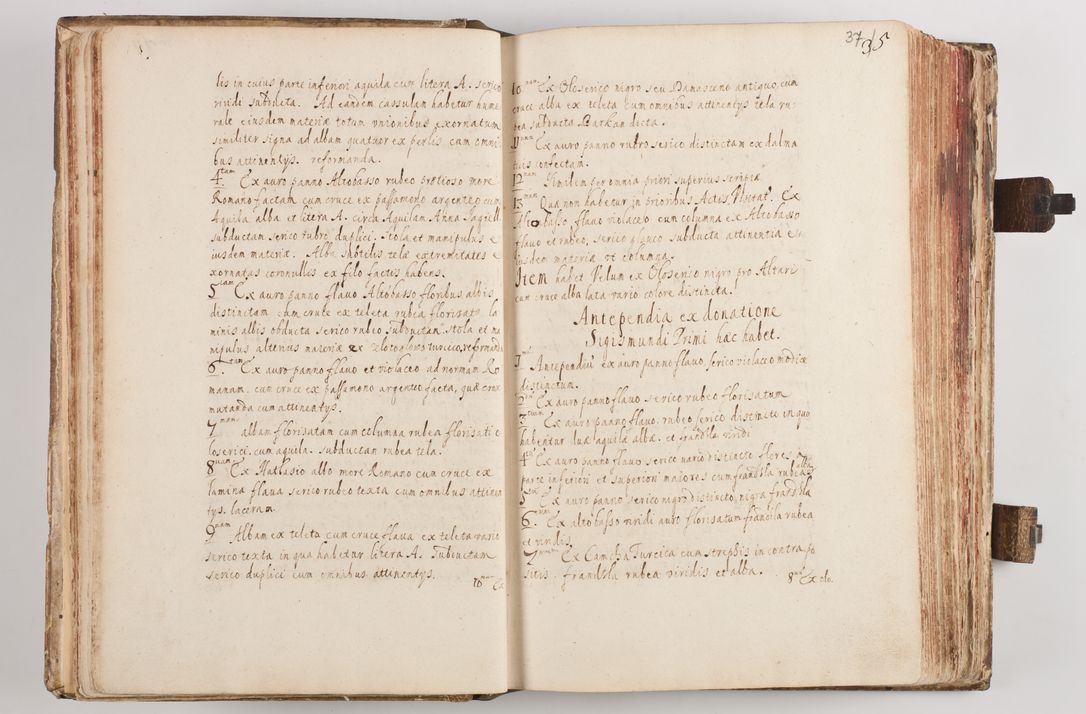 lis in cuius parte inferiori aquila cum litera A. serico
viridi subducta. Ad eandem cassulam habetur hume
rale eiusdem materiæ totum unionibus exornatum
similiter signa ad albam quatuor ex perlis, cum omni
bus attinentijs. reformanda.
4tam Ex auro panno Altobasso rubeo pretioso more
Romano factam cum cruce ex passamono argenteo cum
Aquila alba et litera A. circa Aquilam Anna Jagiell.
subductam serico rubro duplici. Stola et manipulus e
iusdem materiæ. Alba subtilis telæ extremitates e
xornatas coronullis ex filo factis habens.
5tam Ex auro panno flavo Altobasso floribus albis
distinctam cum cruce ex teleta rubea florisata la
minis albis obducta serico rubeo subductam Stola et ma
nipulus alterius materiæ ex turcico, reformanda
6tam Ex auro panno flavo et violaceo ad normam Ro
manam, cum cruce ex passemono argenteo facta, quæ crux
mutanda cum attinentijs.
7mam albam florisatam cum columna rubea florisati o
loserici, cum aquila. subductam rubea tela.
8uam Ex Hatlasio albo more Romano cum cruce ex
lamina flava serico rubeo texta cum omnibus attinen
tijs. laceram.
9nam Albam ex teleta cum cruce flava ex teleta vario
serico texta in qua habetur litera A. subductam
serico duplici cum omnibus attinentijs.
10mam Ex
37
35
10mam Ex Oloserico nigro seu Damasceno antiquo, cum
cruce alba ex teleta cum omnibus attinentijs tela ru-
bea subducta Barkan dicta.
11mam Ex auro panno rubro serico distinctam ex dalma
ticis confectam.
12mam Similem per omnia priori superius scriptæ
13mam Qua non habetur in prioribus Actis Visitat. Ex
Altobasso flavo violaceo cum columna ex Altobasso
flavo et rubeo, serico glauco subducta attinentia e-
iusdem materiæ ut columna.
Item habet Velum ex Oloserico nigro pro Altari
cum cruce alba lata vario colore distincta.
Antependia ex donatione
Sigismundi Primi hæc habet.
1mū Antependiū ex auro panno flavo, serico violaceo modice
distinctum.
2dum Ex auro panno flavo serico rubeo florisatum
3tium Ex auro panno flavo, rubeo serico distincto in quo
habentur duæ aquilæ albæ. et frandsla viridi
4tū Ex auro panno flavo serico vario distincto flores in
parte inferiori et superiori maiores cum frandsla rubea alba
5tum Ex auro panno serico nigro distincto, nigra frandsla
6tum Ex altobasso viridi auro florisatum frandsla rubea
et viridis
7mum Ex Camcha Turcica cum strephis in contra po
sitis. frandsla rubea viridis et alba.
8uum Ex olo.